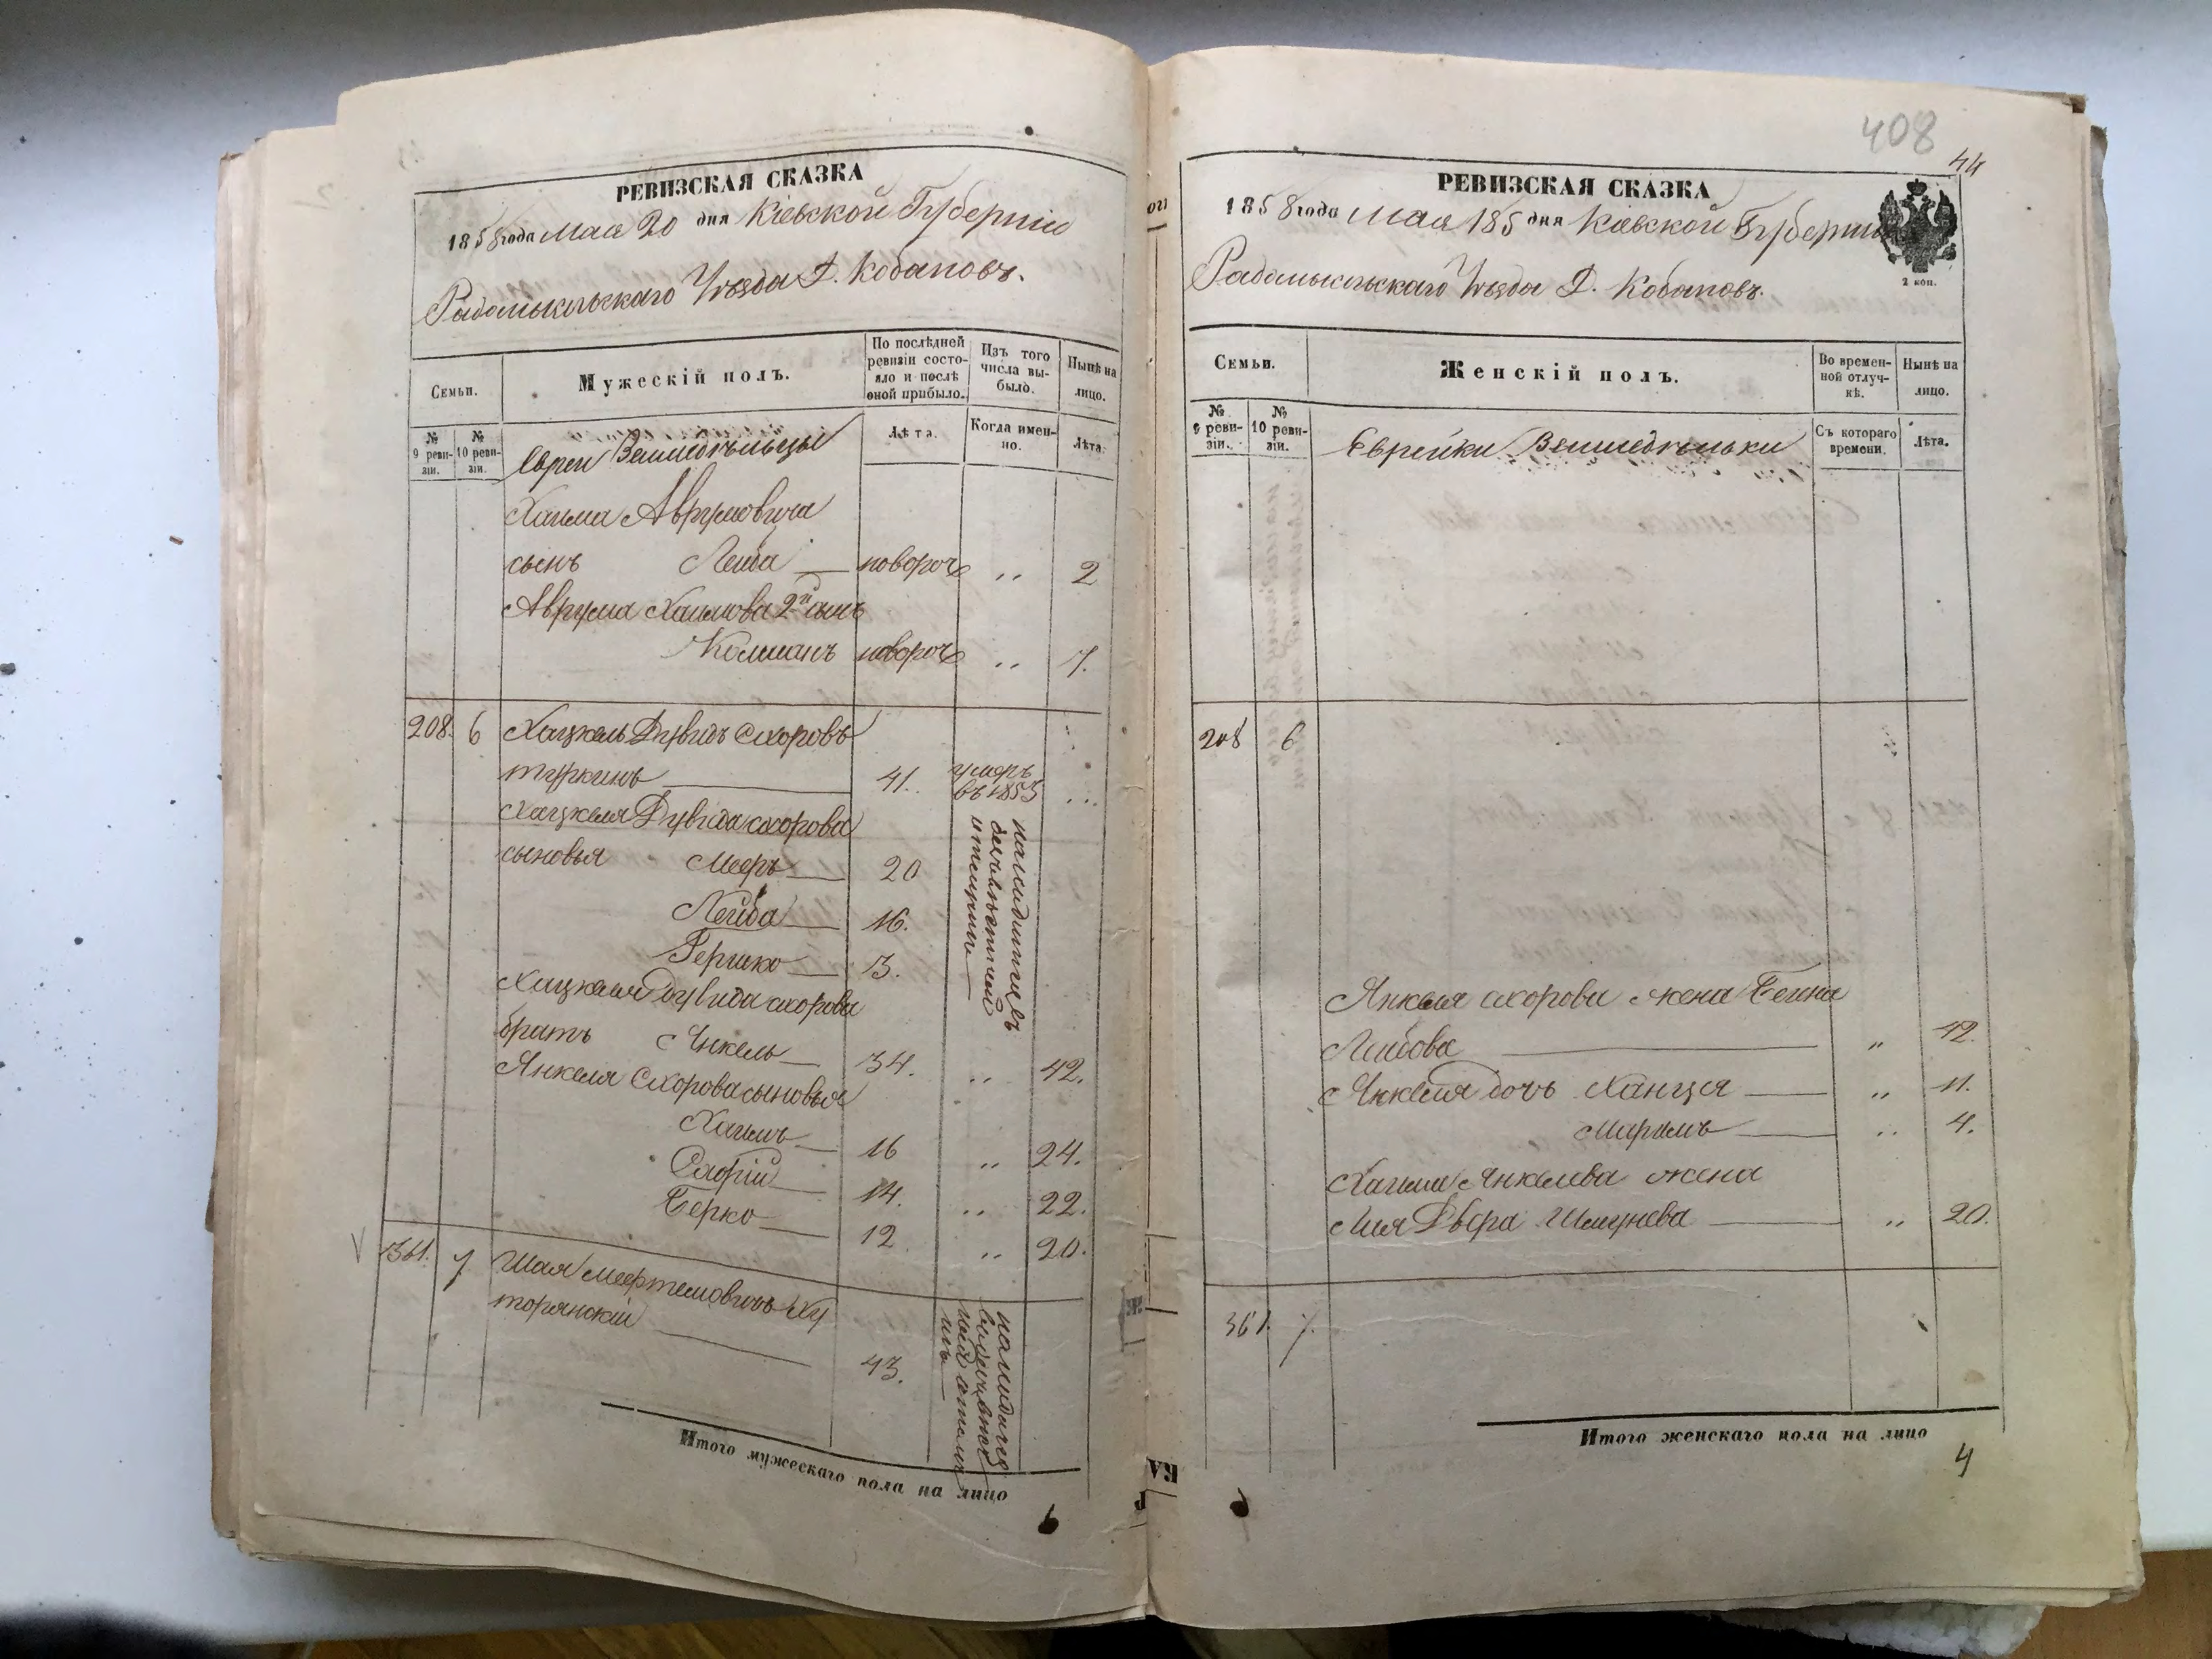 РЕВИЗСКАЯ СКАЗКА
1858 года Мая 20 дня Кіевской Губерніи
Радомысльскаго Уѣзда
Семьи.
Мужескій полъ.
По послѣдней ревизіи состояло и послѣ оной прибыло.
Изъ того числа выбыло.
Нынѣ на лицо.
№ 9 ревизіи.
№ 10 ревизіи.
Лѣта.
Когда именно.
Лѣта.
Евреи
Хаима Аврумовича
сынъ Лейба — новорож „ 2
Аврума Хаимова 2й сынъ
Колманъ новорож „ 7.
208. 6 Хацкель Дувидъ Схоровъ
туркинъ 41. умеръ въ 1853 „
Хацкеля Дувида схорова
сыновья Мееръ — 20
Лейба — 16.
Гершко — 13.
Хацкеля Дувида схорова
братъ Янкель — 34. „ 42.
Янкеля Схорова сыновья
Хаимъ — 16 „ 24.
Схорій — 14. „ 22.
Берко — 12 „ 20.
1361. 7 Шая Меертемовичъ Ху
торянскій 43.
Итого мужескаго пола на лицо
6
408
44
РЕВИЗСКАЯ СКАЗКА
1858 года Мая 185 дня Кіевской Губерніи
2 коп.
Радомысльскаго Уѣзда
Семьи.
Женскій полъ.
Во временной отлучкѣ.
Нынѣ на лицо.
№ 9 ревизіи.
№ 10 ревизіи.
Съ котораго времени.
Лѣта.
Еврейки
208 6
Янкеля схорова жена Бейна
Лейбова „ 42.
Янкеля дочь Ханця — „ 11.
Маримъ — „ 4.
Хаима Янкелева жена
Лия Двера Шмунева — „ 20.
361. 7.
Итого женскаго пола на лицо
4